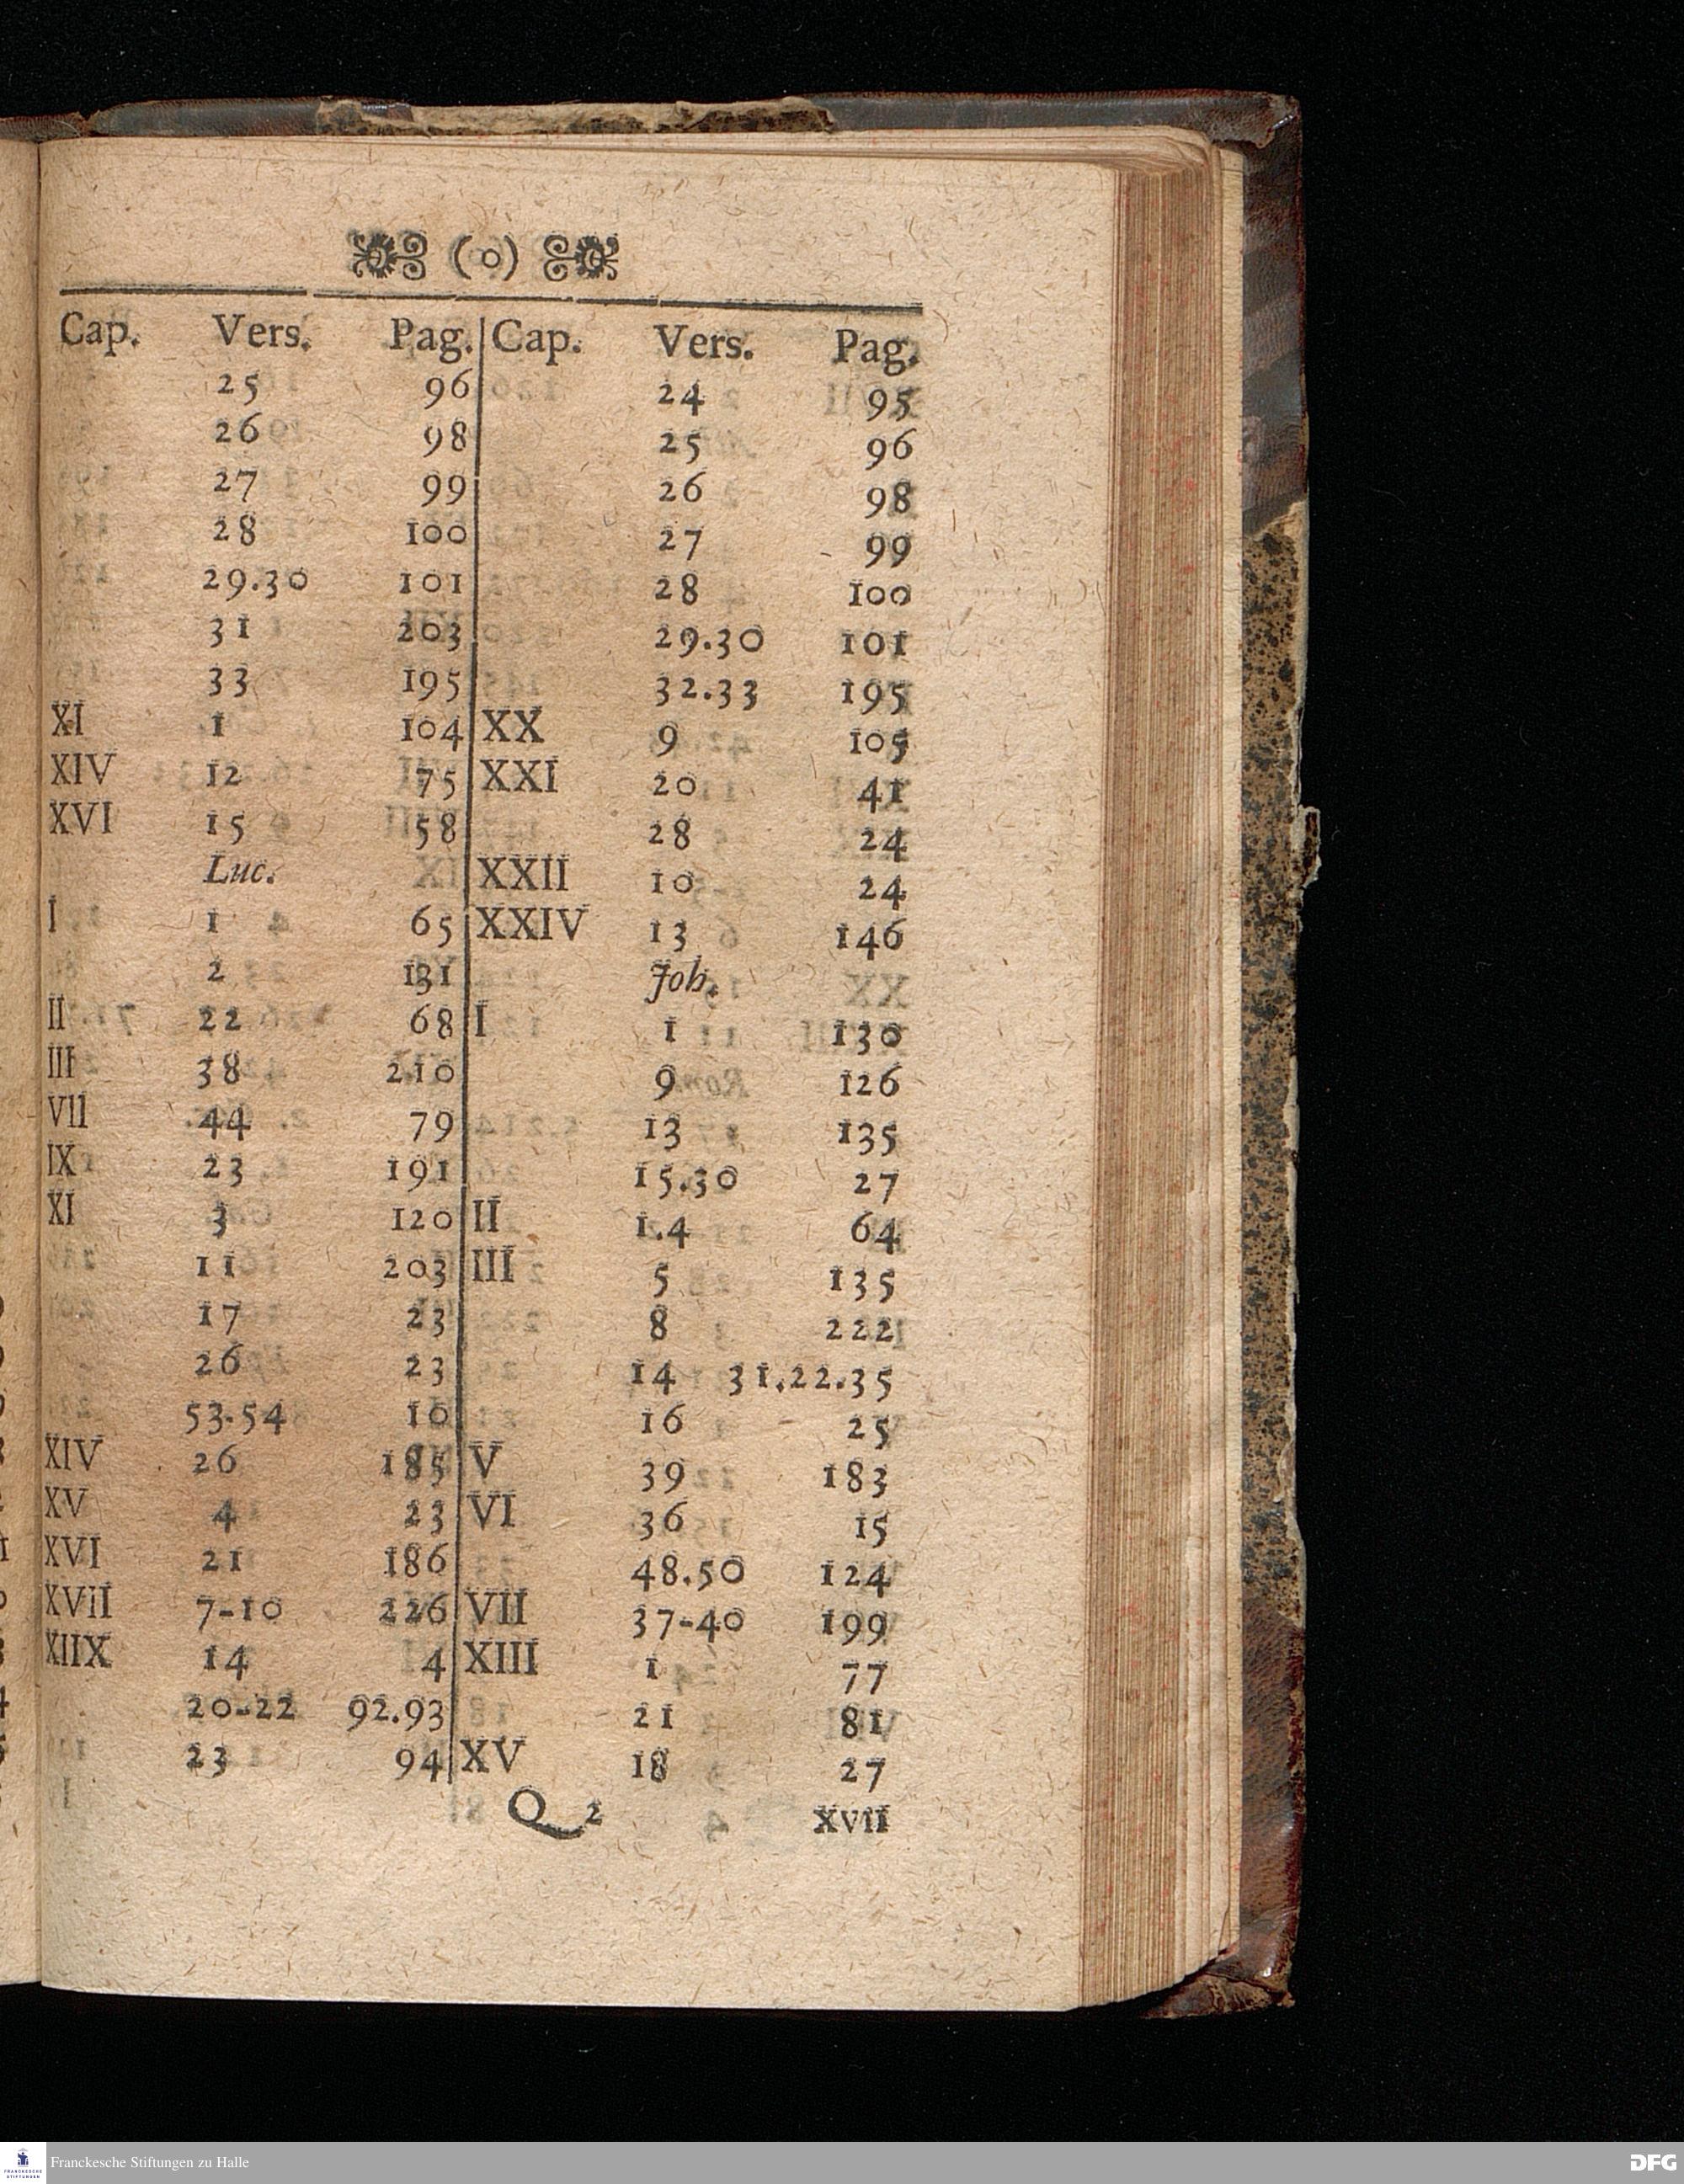 (o)
Cap. Vers. Pag.
25 96
26 98
27 99
28 100
29.30 101
31 203
33 195
XI 1 104
XIV 12 75
XVI 15 58
Luc.
I 1 65
2 131
II 22 68
III 38 210
VII 44 79
IX 23 191
XI 3 120
11 203
17 23
26 23
53.54 10
XIV 26 185
XV 4 23
XVI 21 186
XVII 7-10 226
XIIX 14 4
20-22 92.93
23 94
Cap. Vers. Pag.
24 95
25 96
26 98
27 99
28 100
29.30 101
32.33 195
XX 9 105
XXI 20 41
28 24
XXII 10 24
XXIV 13 146
Joh.
I 1 130
9 126
13 135
15.30 27
II 1.4 64
III 5 135
8 222
14 31.22.35
16 25
V 39 183
VI 36 15
48.50 124
VII 37-40 199
XIII 1 77
21 81
XV 18 27
Q 2 XVII
Franckesche Stiftungen zu Halle
DFG